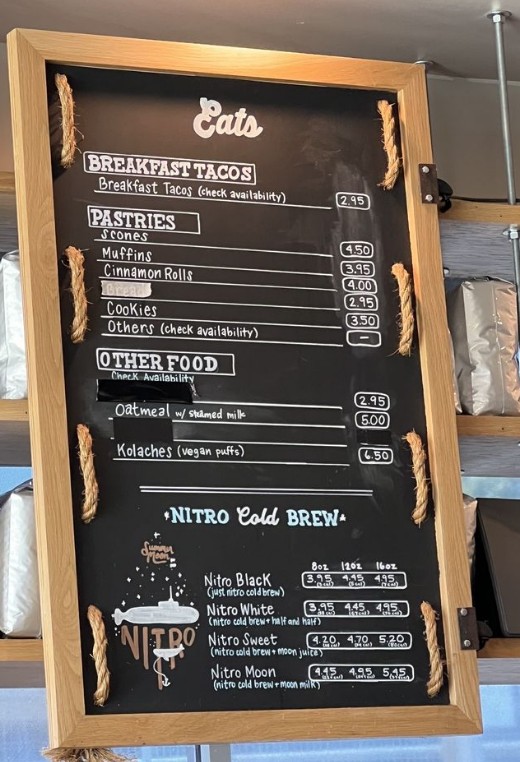 Eats
BREAKFAST TACOS
Breakfast Tacos (check availability) 2.95
PASTRIES
Scones 4.50
Muffins 3.95
Cinnamon Rolls 4.00
Bread 2.95
Cookies 3.50
Others (check availability) —
OTHER FOOD
Check Availability
2.95
Oatmeal w/ steamed milk 5.00
Kolaches (vegan puffs) 6.50
NITRO Cold BREW
Summer Moon
8oz 12oz 16oz
Nitro Black 3.95 4.45 4.95
(just nitro cold brew)
Nitro White 3.95 4.45 4.95
(nitro cold brew + half and half)
Nitro Sweet 4.20 4.70 5.20
(nitro cold brew + moon juice)
Nitro Moon 4.45 4.95 5.45
(nitro cold brew + moon milk)
NITRO